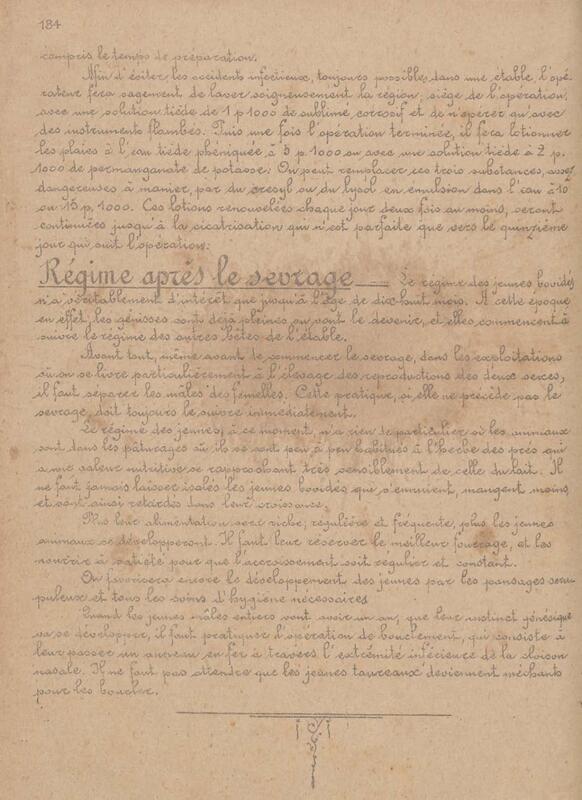 184
compris le temps de préparation.
Afin d'éviter les accidents infectieux, toujours possibles dans une étable, l'opé-
rateur fera sagement de laver soigneusement la région, siège de l'opération,
avec une solution tiède de 1 p 1000 de sublimé corrosif et de n'opérer qu'avec
des instruments flambés. Puis une fois l'opération terminée, il fera lotionner
les plaies à l'eau tiède phéniquée à 5 p. 1000 ou avec une solution tiède à 2 p.
1000 de permanganate de potasse. On peut remplacer ces trois substances, assez
dangereuses à manier, par du crésyl ou du lysol en emulsion dans l'eau à 10
ou 15 p. 1000. Ces lotions renouvelées chaque jour deux fois au moins, seront
continuées jusqu'à la cicatrisation qui n'est parfaite que vers le quinzième
jour qui suit l'opération.
Régime après le sevrage — Le régime des jeunes bovidés
n'a véritablement d'intérêt que jusqu'à l'âge de dix-huit mois. A cette époque
en effet, les génisses sont déjà pleines ou vont le devenir, et elles commencent à
suivre le régime des autres bêtes de l'étable.
Avant tout, même avant de commencer le sevrage, dans les exploitations
où on se livre particulièrement à l'élevage des reproductions des deux sexes,
il faut separer les mâles des femelles. Cette pratique, si elle ne précède pas le
sevrage, doit toujours le suivre immédiatement.
Le régime des jeunes, à ce moment, n'a rien de particulier si les animaux
sont dans les pâturages où ils se sont peu à peu habitués à l'herbe des prés qui
a une valeur nutritive se rapprochant très sensiblement de celle du lait. Il
ne faut jamais laisser isolés les jeunes bovidés qui s'ennuient, mangent moins
et sont ainsi retardés dans leur croissance.
Plus leur alimentation sera riche, régulière et fréquente, plus les jeunes
animaux se développeront. Il faut leur réserver le meilleur fourrage, et les
nourrir à satiété pour que l'accroissement soit regulier et constant.
On favorisera encore le développement des jeunes par les pansages scru-
puleux et tous les soins d'hygiène nécessaires
Quand les jeunes mâles entiers vont avoir un an, que leur instinct génésique
va se développer, il faut pratiquer l'opération de bouclement, qui consiste à
leur passer un anneau en fer à travers l'extrémité inférieure de la cloison
nasale. Il ne faut pas attendre que les jeunes taureaux deviennent méchants
pour les boucler.